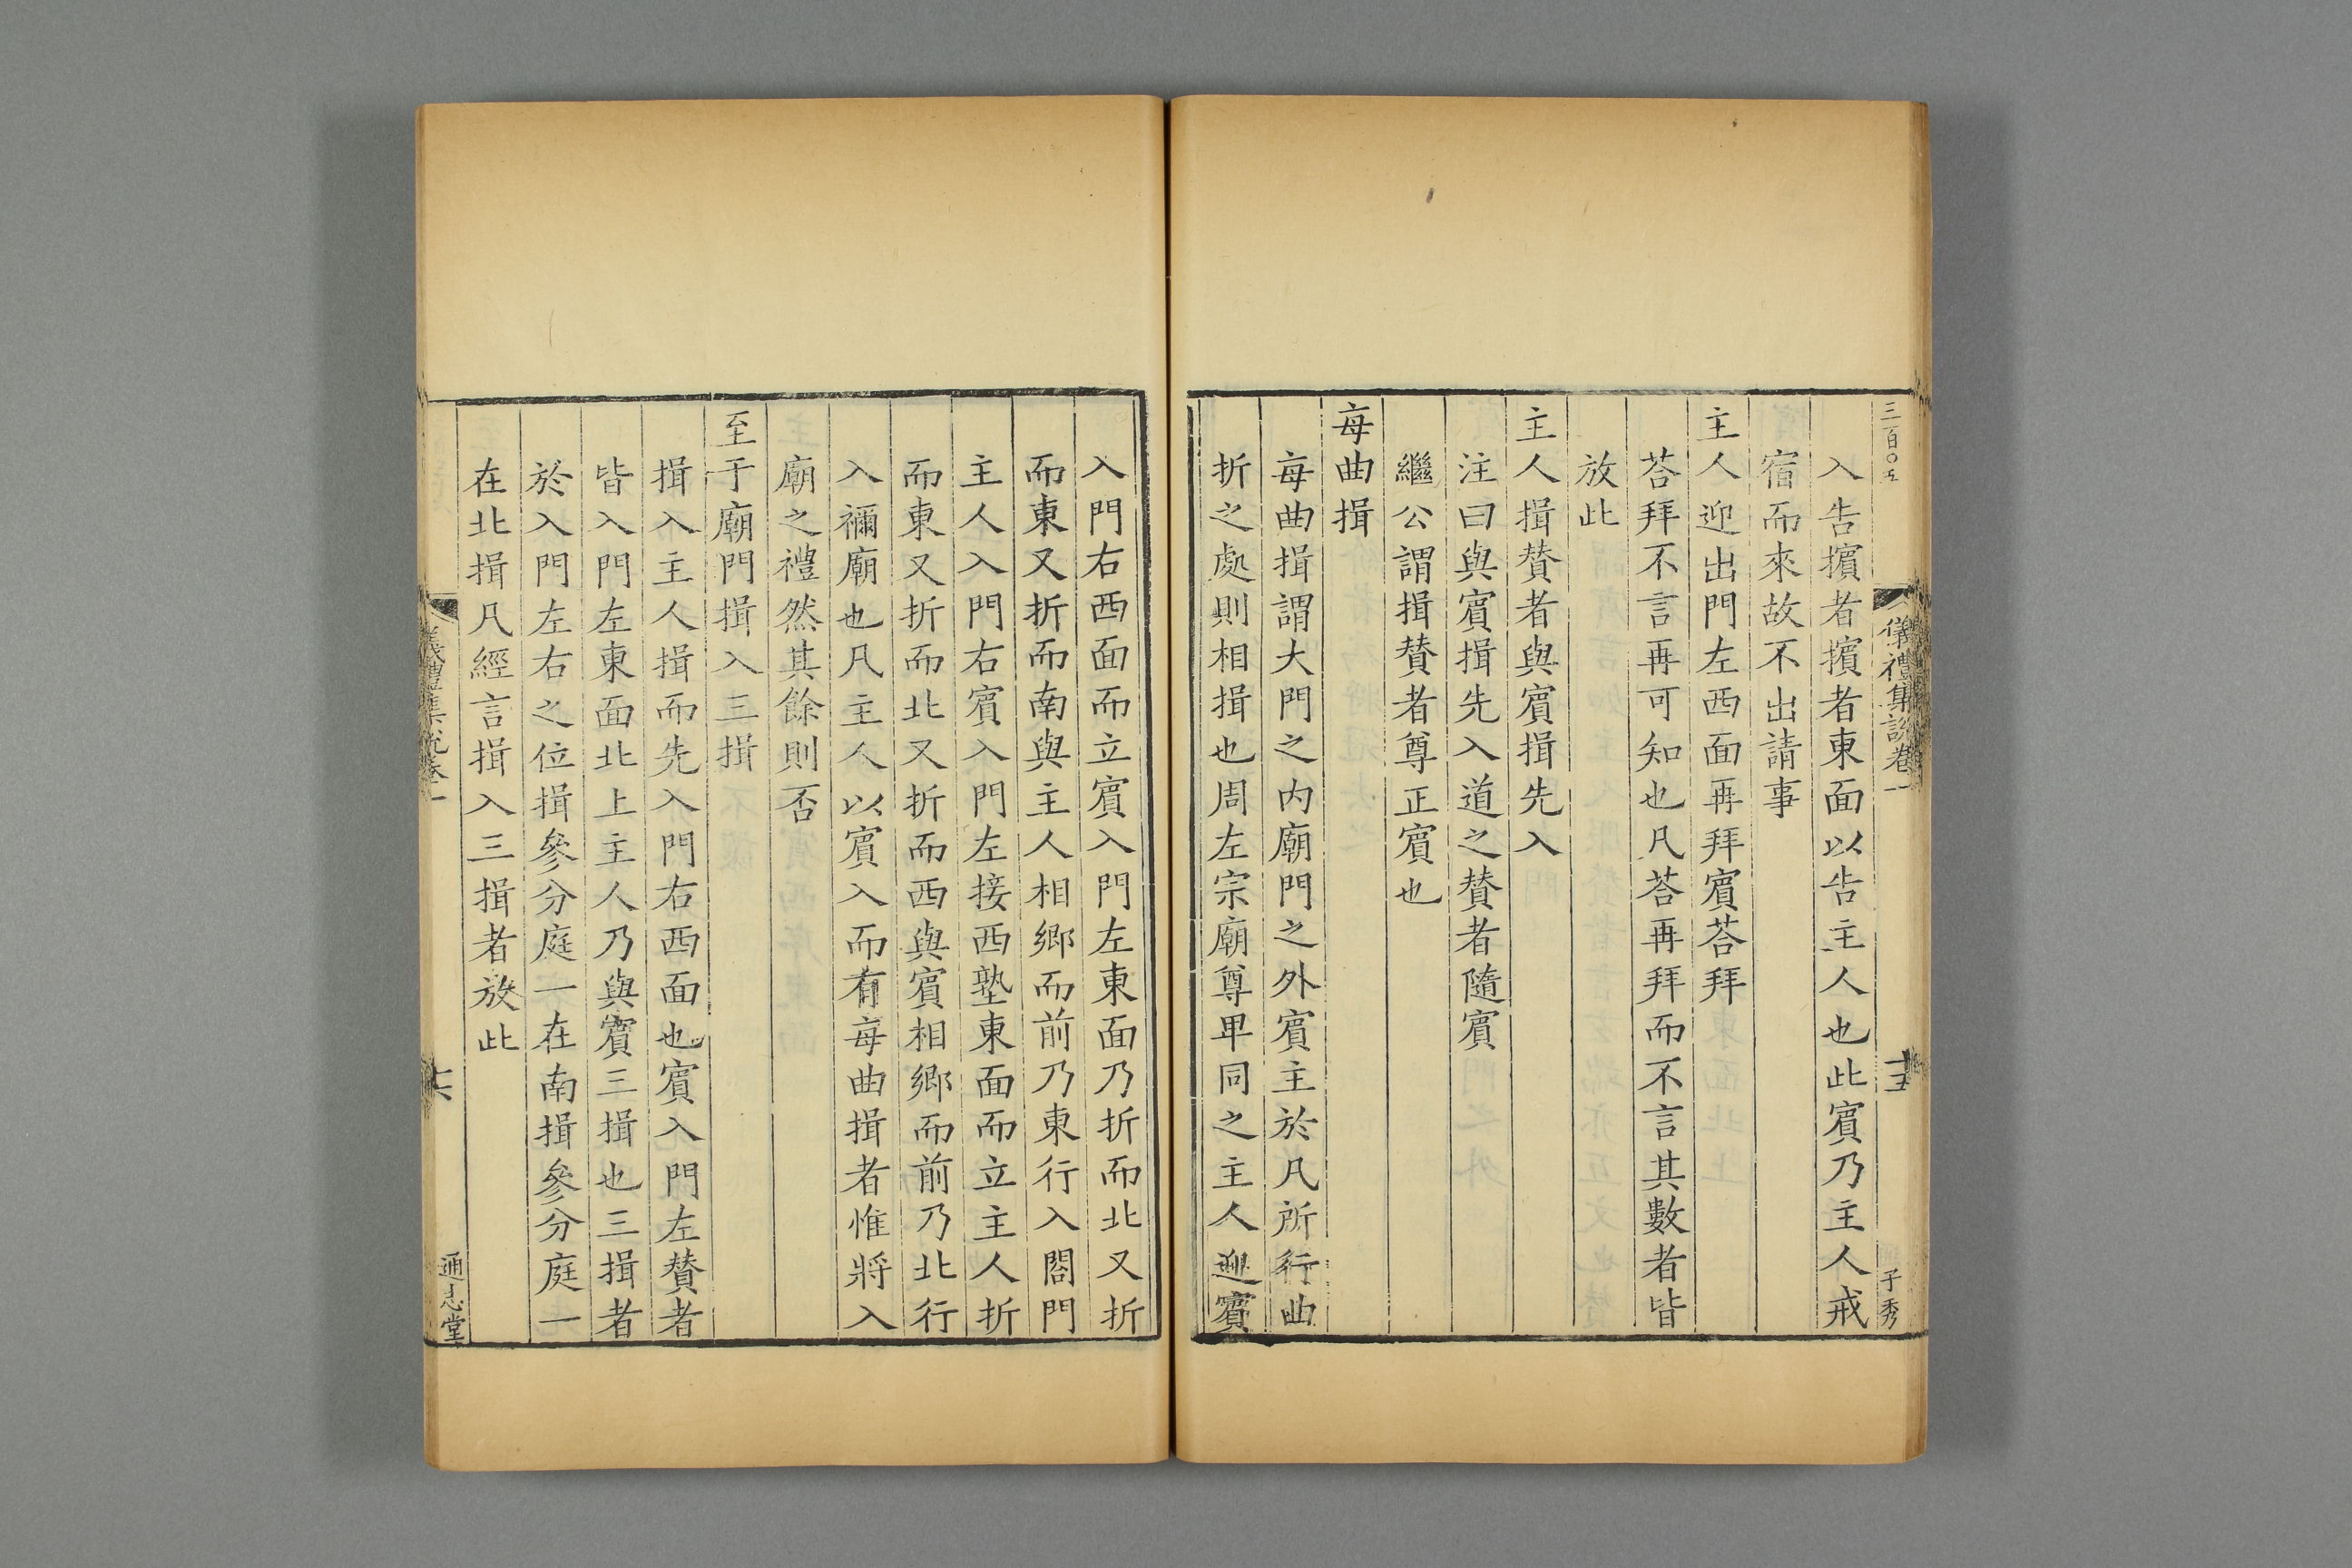 三百〇五
儀禮集說卷一
十五
子秀
入告擯者擯者東面以告主人也此賓乃主人戒
宿而來故不出請事
主人迎出門左西面再拜賓荅拜
荅拜不言再可知也凡荅再拜而不言其數者皆
放此
主人揖贊者與賓揖先入
注曰與賓揖先入道之贊者隨賓
繼公謂揖贊者尊正賓也
每曲揖
每曲揖謂大門之内廟門之外賓主於凡所行曲
折之處則相揖也周左宗廟尊卑同之主人迎賓
入門右西面而立賓入門左東面乃折而北又折
而東又折而南與主人相鄉而前乃東行入閤門
主人入門右賓入門左接西塾東面而立主人折
而東又折而北又折而西與賓相鄉而前乃北行
入禰廟也凡主人以賓入而有每曲揖者惟將入
廟之禮然其餘則否
至于廟門揖入三揖
揖入主人揖而先入門右西面也賓入門左贊者
皆入門左東面北上主人乃與賓三揖也三揖者
於入門左右之位揖參分庭一在南揖參分庭一
在北揖凡經言揖入三揖者放此
儀禮集說卷一
十六
通志堂